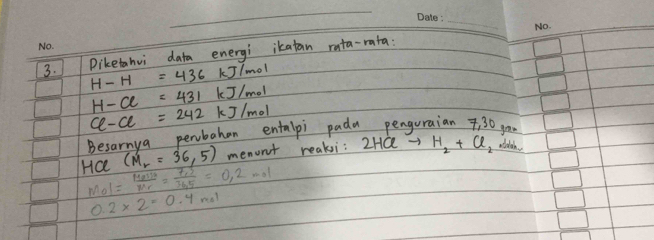 Date :
No.
No.
3. Diketahui data energi ikatan rata-rata:
H-H = 436 kJ/mol
H-Cl = 431 kJ/mol
Cl-Cl = 242 kJ/mol
Besarnya perubahan entalpi pada penguraian 7,30 gram
HCl (Mr = 36,5) menurut reaksi: 2HCl → H2 + Cl2 adalah
Mol = Massa/Mr = 7,3/36,5 = 0,2 mol
0.2 x 2 = 0.4 mol